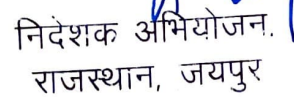 निदेशक अभियोजन.
राजस्थान, जयपुर